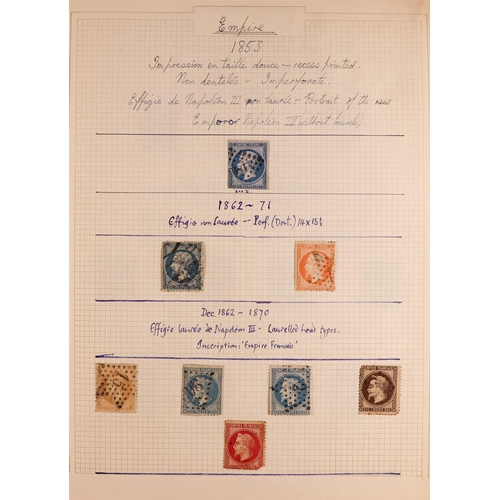 Empire
1853
Impression en taille douce — recess printed.
Non dentelés — Imperforate.
Effigie de Napoléon III non laurée — Portrait of the new
Emperor Napoléon III (without laurels)
1862 ~ 71
Effigie non laurée — Perf. (Dent.) 14 x 13½
Dec. 1862 ~ 1870
Effigie laurée de Napoléon III — Laurelled head types.
Inscription: "Empire Francais"